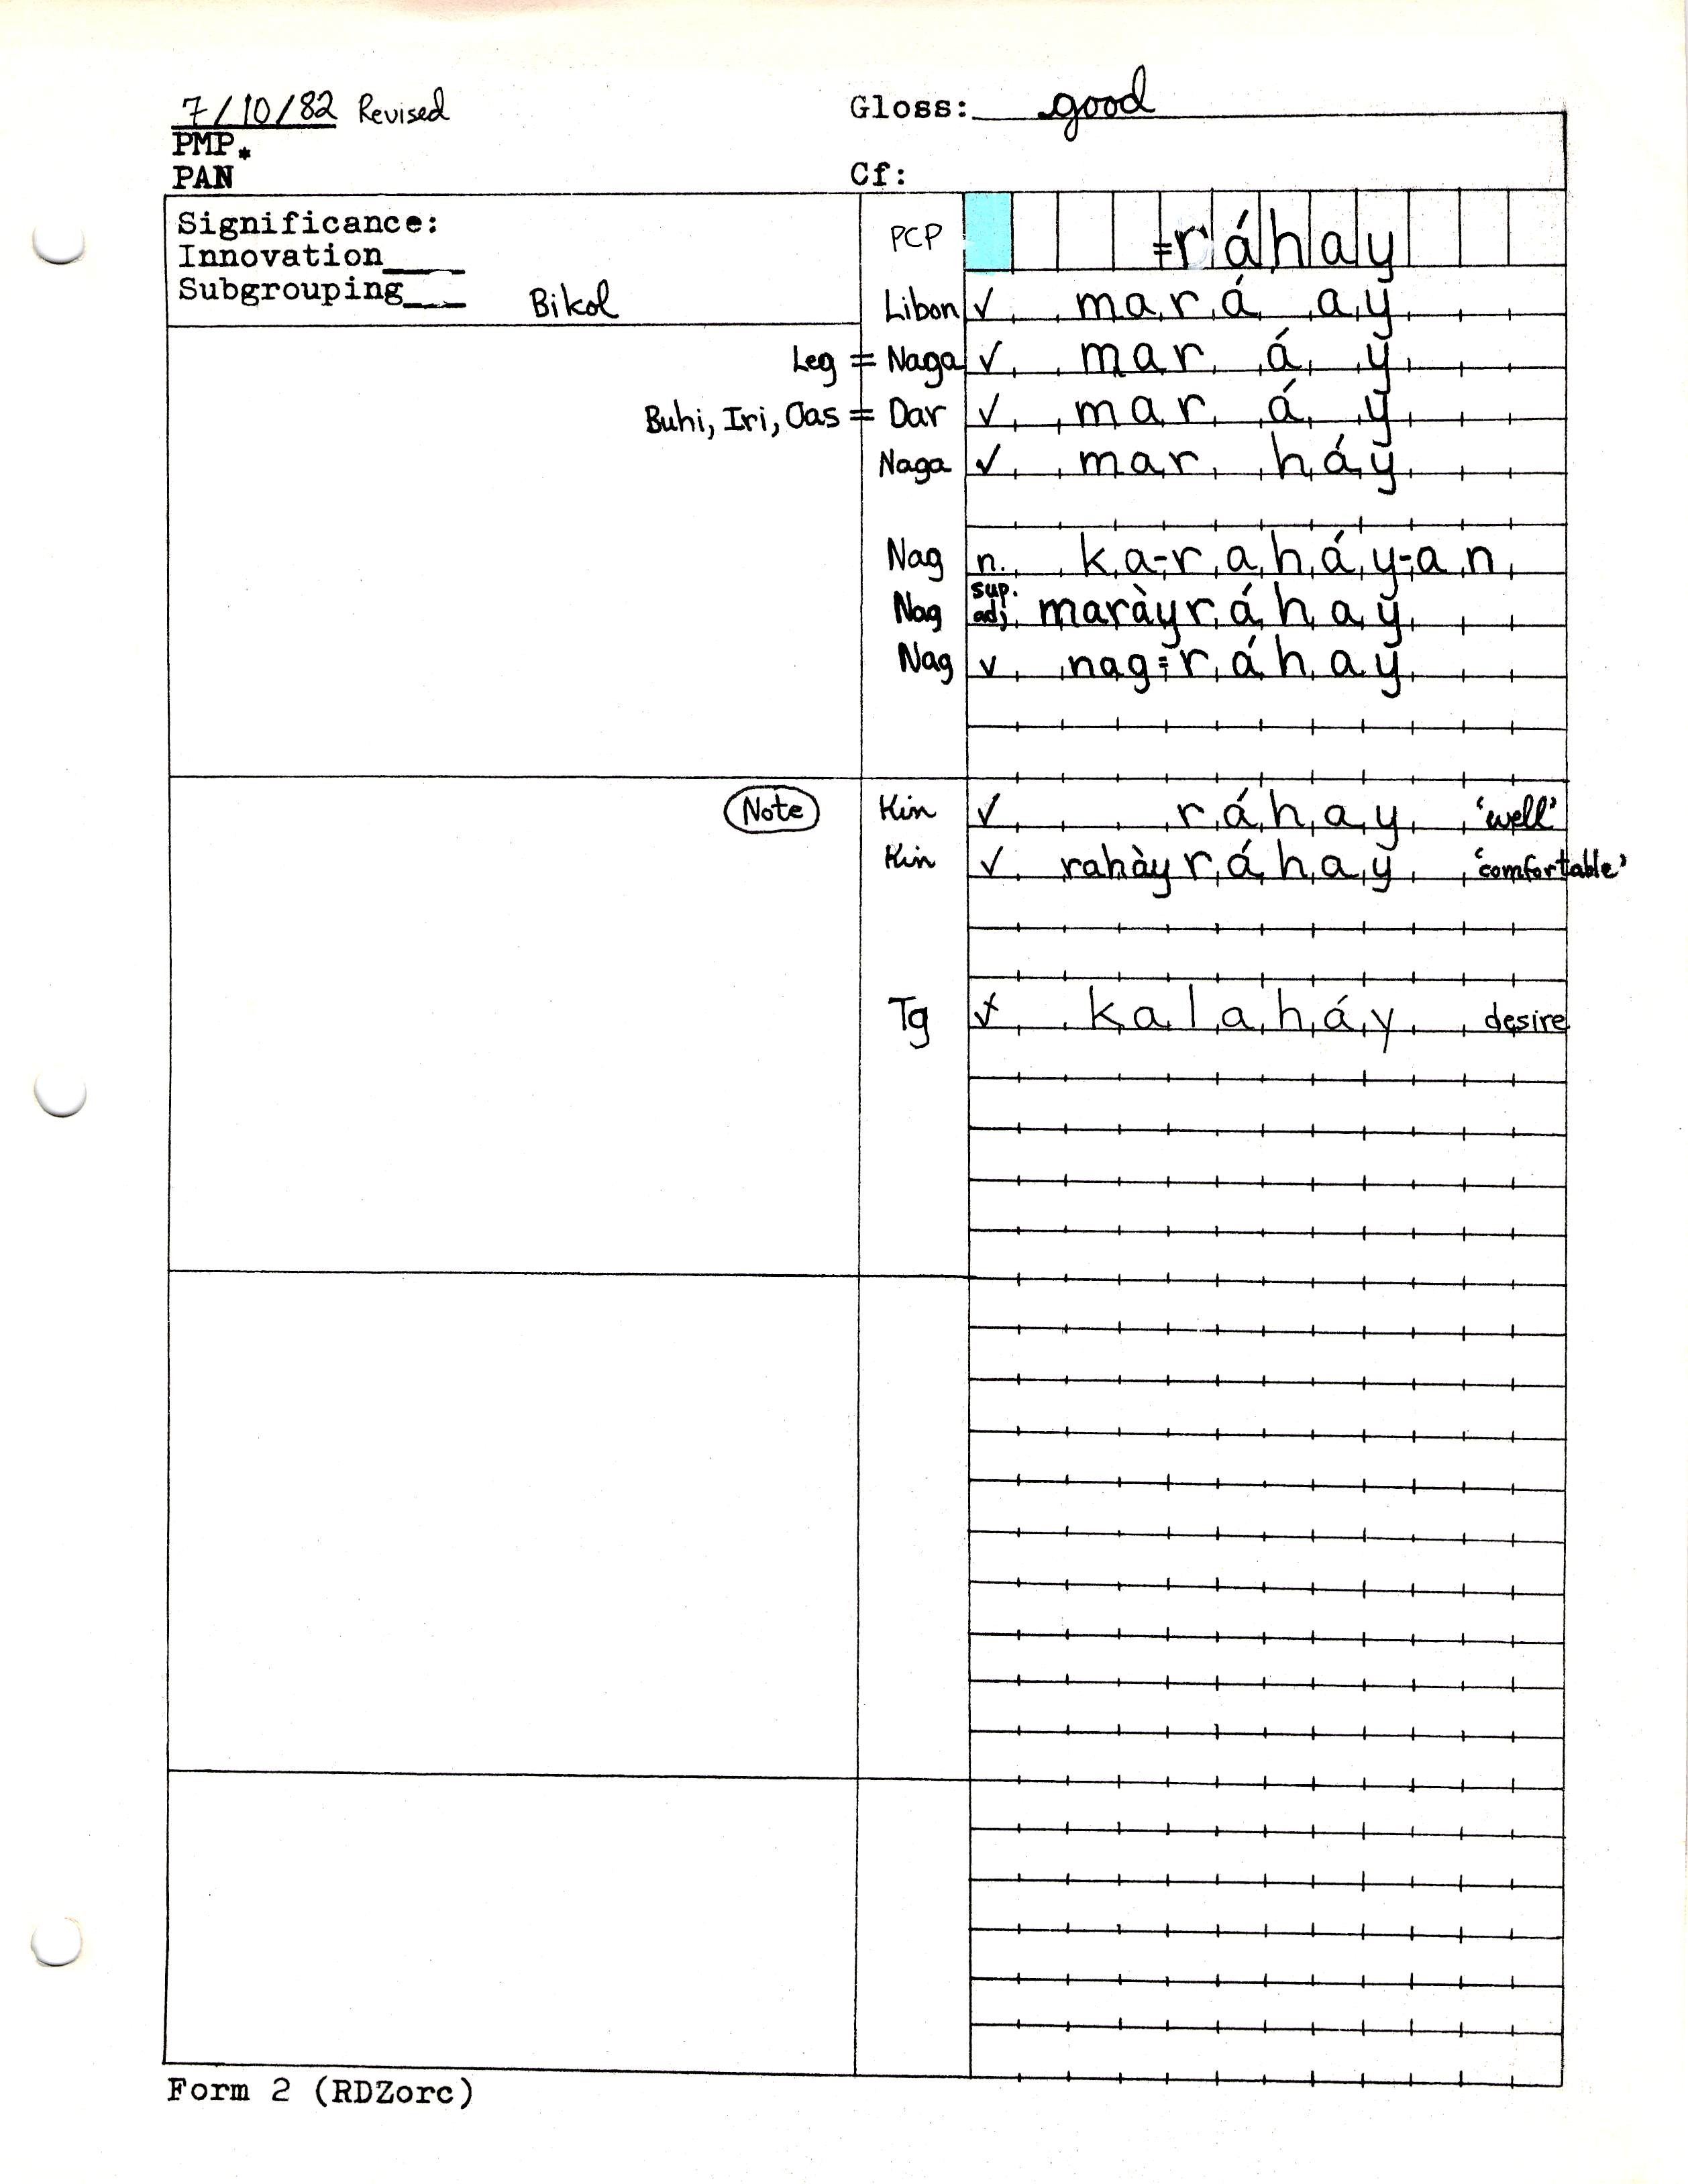 7/10/82 Revised Gloss: good
PMP*
PAN Cf:
Significance:
Innovation____
Subgrouping____ Bikol
PCP =ráhay
Libon ✓ mará ay
Leg = Naga ✓ mar á y
Buhi, Iri, Oas = Dar ✓ mar á y
Naga ✓ mar háy
Nag n. ka-raháy-an
Nag sup. adj. maràyráhay
Nag v nag=ráhay
Note Kin ✓ ráhay 'well'
Kin ✓ rahàyráhay 'comfortable'
Tg ✓ kalaháy desire
Form 2 (RDZorc)